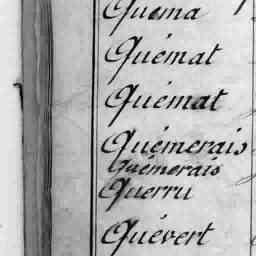 Quéma
Quémat
Quémat
Quémerais
Quémerais
Querru
Quévert